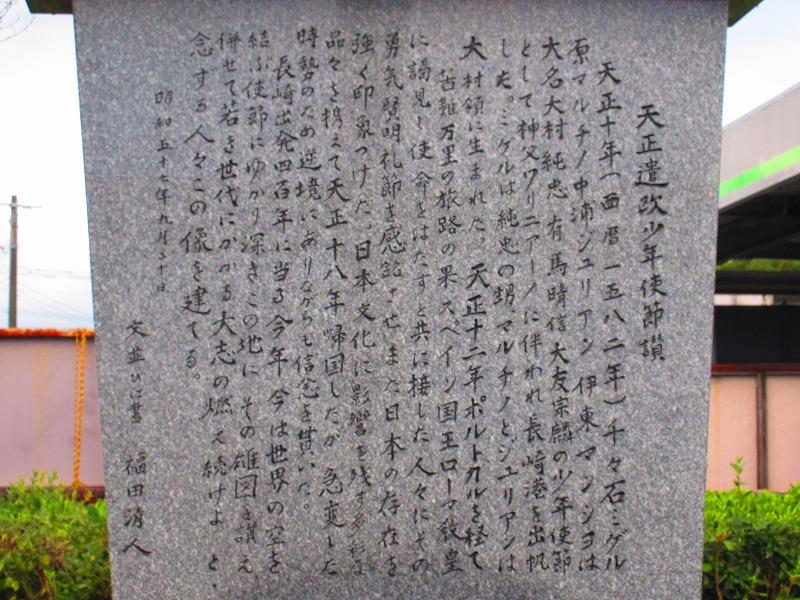 天正遣欧少年使節讃
天正十年(西暦一五八二年)千々石ミゲル
原マルチノ中浦ジュリアン 伊東マンショは
大名大村純忠 有馬晴信 大友宗麟の少年使節
として神父ワリニアーノに伴われ長崎港を出帆
した。ミゲルは純忠の甥、マルチノとジュリアンは
大村領に生まれた。天正十二年ポルトガルを経て
苦難万里の旅路の果スペイン国王ローマ教皇
に謁見し使命をはたすと共に接した人々にその
勇気賢明礼節を感銘させまた日本の存在を
強く印象つけた。日本文化に影響を残す多彩な
品々を携えて天正十八年帰国したが 急変した
時勢のため逆境にありながらも信念を貫いた。
長崎出発四百年に当る今年 今は世界の空を
結ぶ使節にゆかり深きこの地に その雄図を讃え
併せて若き世代にかかる大志の燃え続けよ と、
念ずる人々この像を建てる。
昭和五十七年九月二十日
文並びに書 福田清人